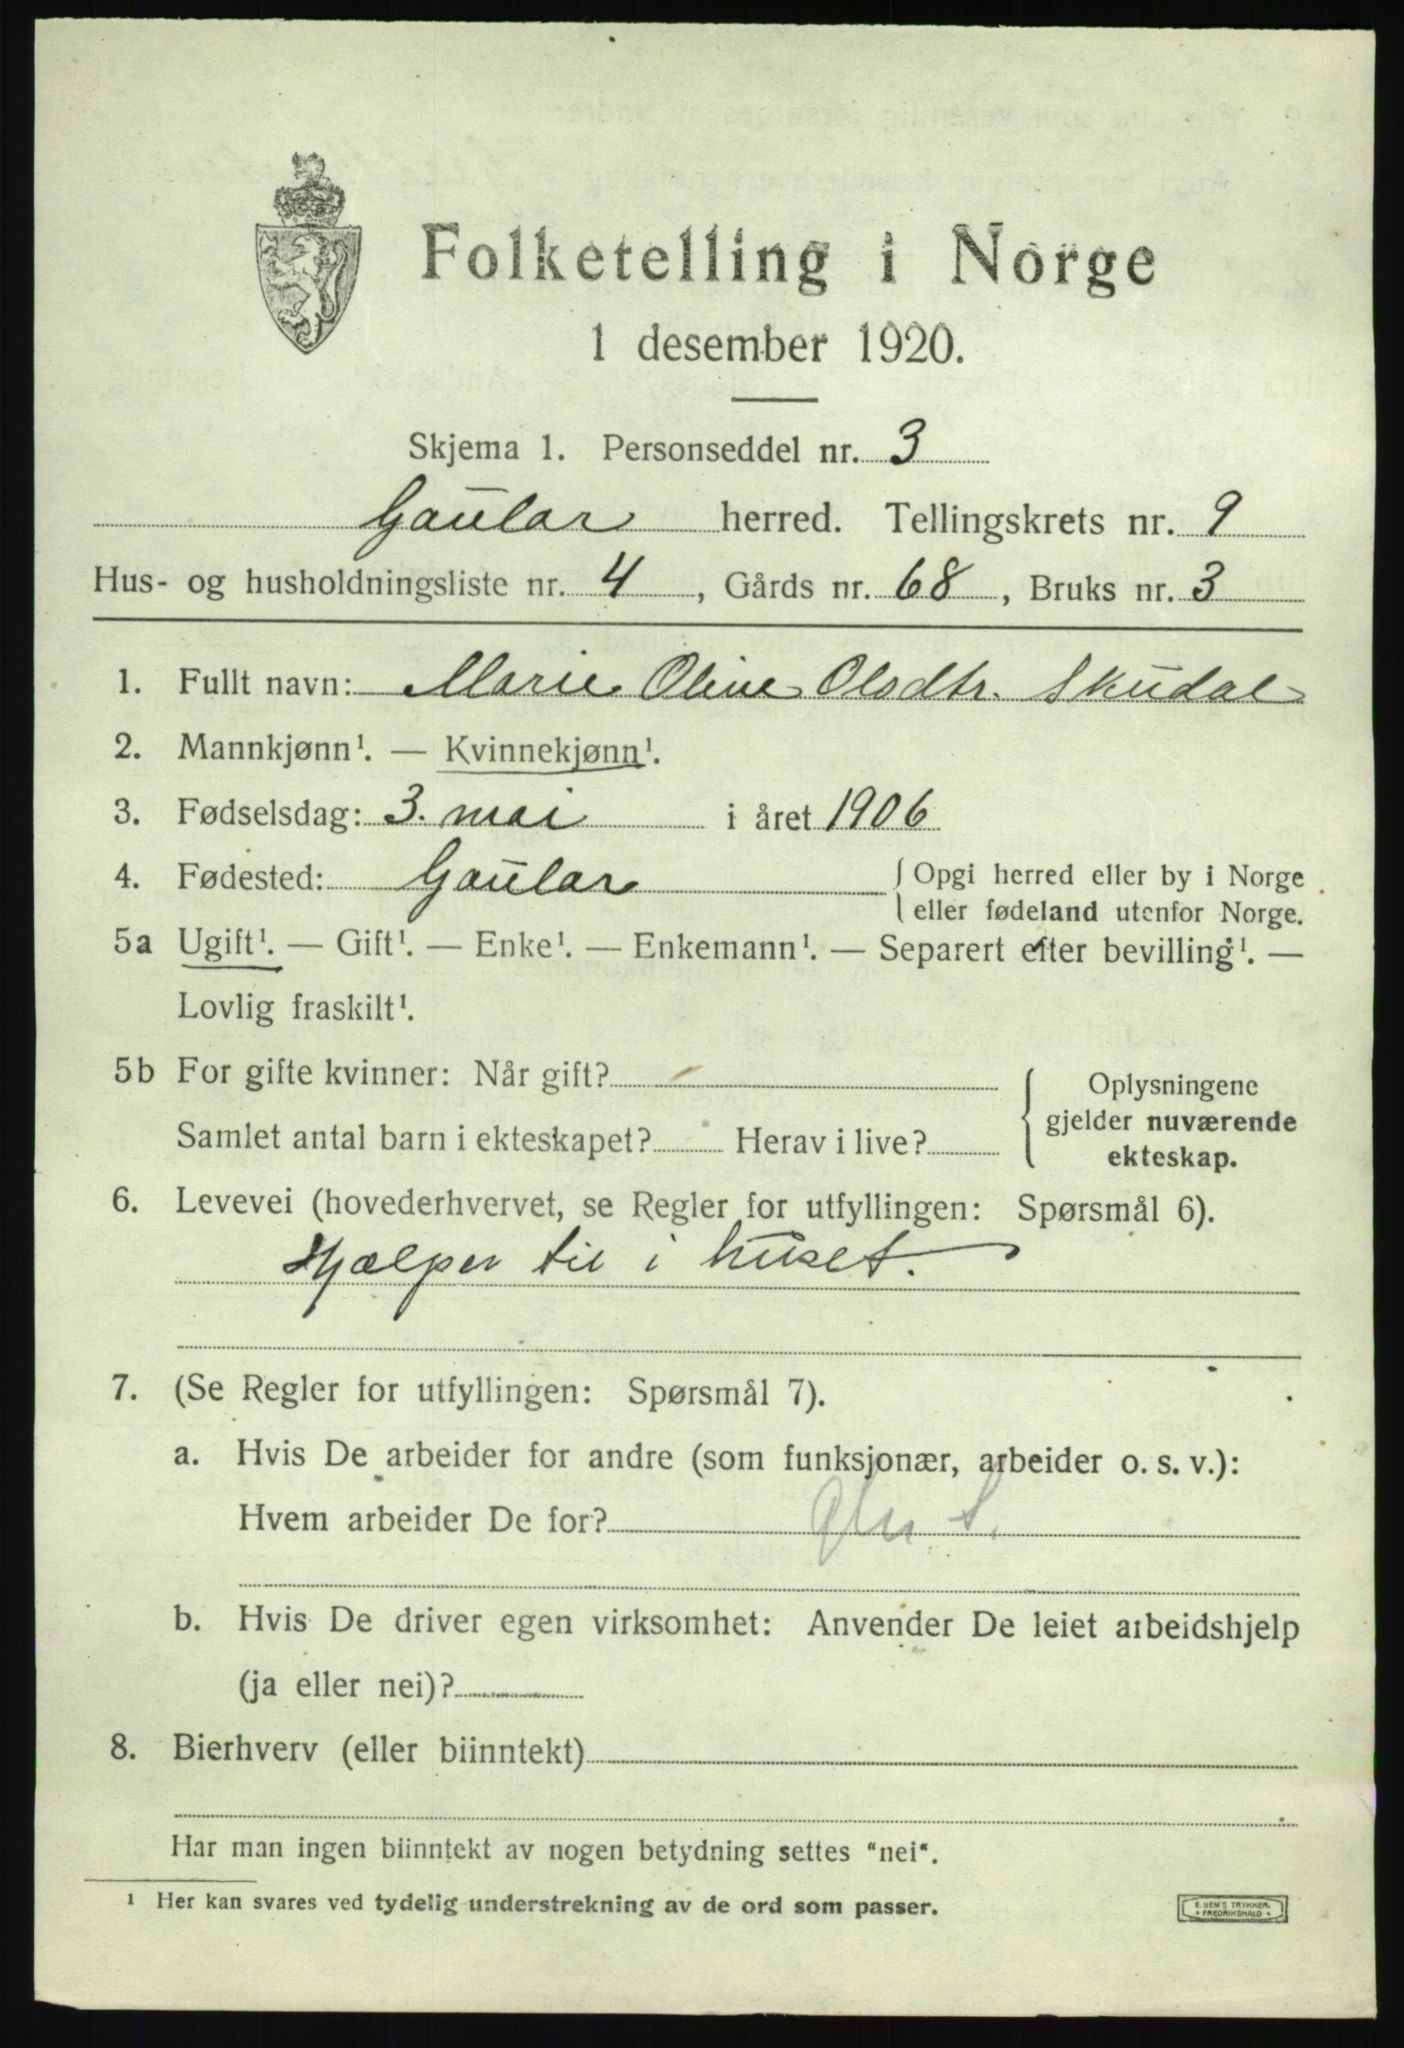 Folketelling i Norge
1 desember 1920.
Skjema 1. Personseddel nr. 3
Gaular herred. Tellingskrets nr. 9
Hus- og husholdningsliste nr. 4, Gårds nr. 68, Bruks nr. 3
1. Fullt navn: Marie Oline Olsdtr. Skudal
2. Mannkjønn¹. — Kvinnekjønn¹.
3. Fødselsdag: 3. mai i året 1906
4. Fødested: Gaular { Opgi herred eller by i Norge
eller fødeland utenfor Norge.
5a Ugift¹. — Gift¹. — Enke¹. — Enkemann¹. — Separert efter bevilling¹. —
Lovlig fraskilt¹.
5b For gifte kvinner: Når gift? { Oplysningene
gjelder nuværende
Samlet antal barn i ekteskapet? Herav i live?
ekteskap.
6. Levevei (hovederhvervet, se Regler for utfyllingen: Spørsmål 6).
Hjælper til i huset.
7. (Se Regler for utfyllingen: Spørsmål 7).
a. Hvis De arbeider for andre (som funksjonær, arbeider o. s. v.):
Hvem arbeider De for?
b. Hvis De driver egen virksomhet: Anvender De leiet arbeidshjelp
(ja eller nei)?
8. Bierhverv (eller biinntekt)
Har man ingen biinntekt av nogen betydning settes "nei".
¹ Her kan svares ved tydelig understrekning av de ord som passer.
E. SEM'S TRYKKERI
• FREDRIKSHALD •